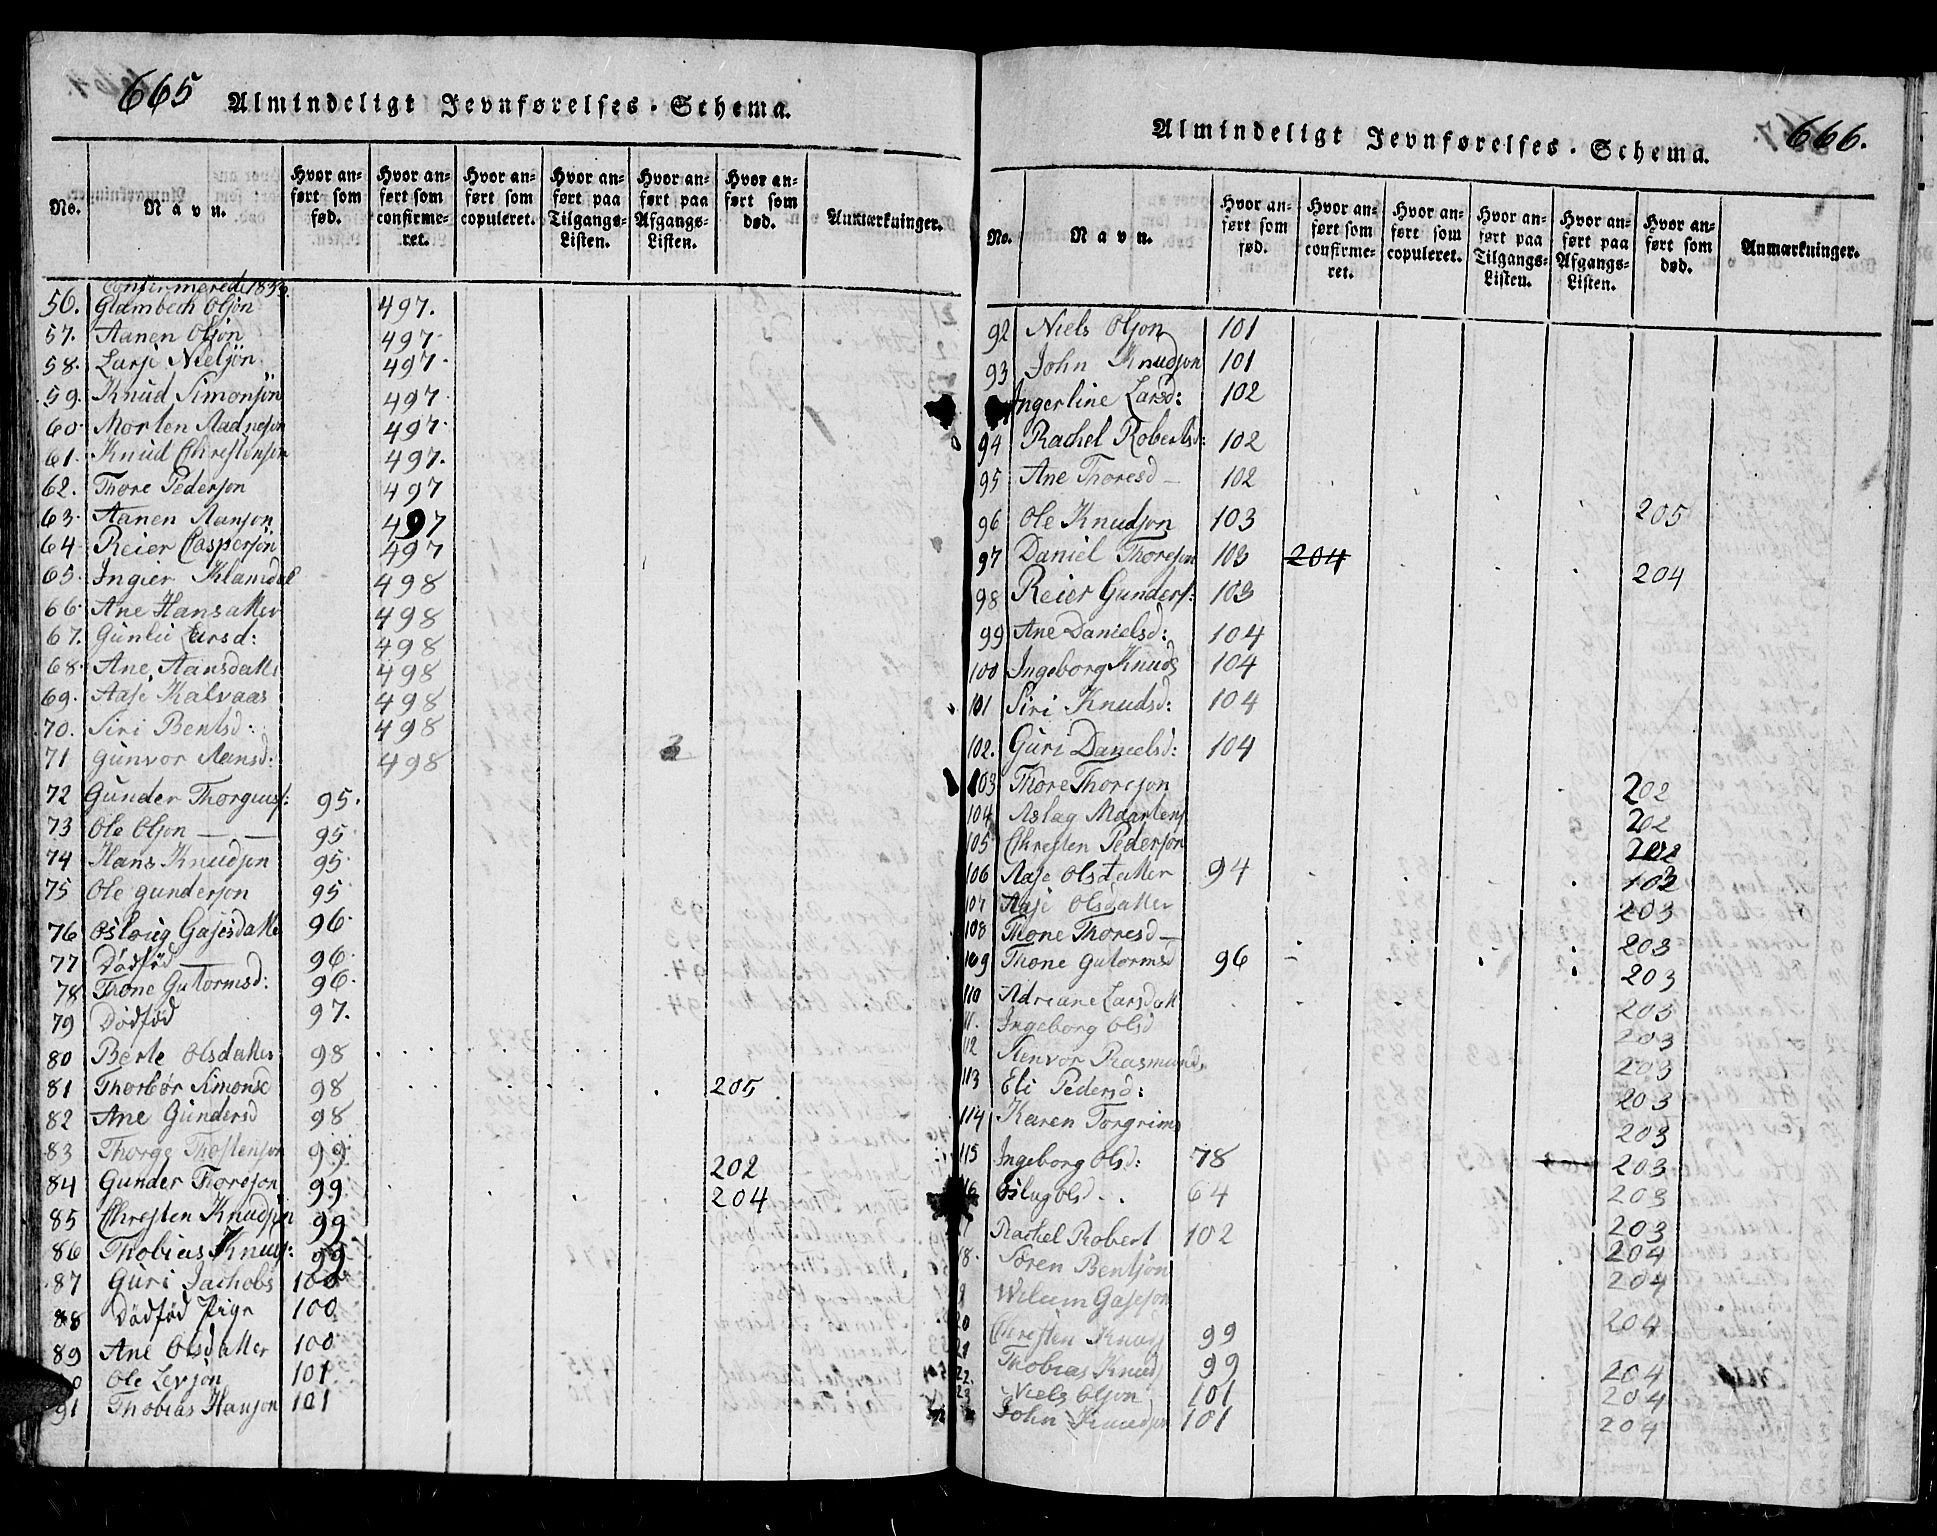 665 Almindeligt Jevnførelses-Schema.
No. Navn. Hvor anført som fød. Hvor anført som confirmeret. Hvor anført som copuleret. Hvor anført paa Tilgangs-Listen. Hvor anført paa Afgangs-Listen. Hvor anført som død. Anmærkninger.
Confirmerede
56. Olsøn 497.
57. Aanen Olsøn 497.
58. Larse Nielsøn 497.
59. Knud Simonsøn 497
60. Morten Aadnesøn 497.
61. Knud Christensøn 497.
62. Thore Pedersøn 497
63. Aanen Aansøn 497
64. Reier Caspersøn 497
65. Ingier 498
66. Ane Hansdatter 498
67. Gunlie Larsd: 498
68. Ane Aansdatter 498
69. Aase Kalvaas 498
70. Siri Bentsd: 498
71 Gunvor Aansd: 498
72 Gunder 95.
73 Ole Olsøn — — 95
74 Hans Knudsøn 95.
75 Ole Gundersøn 95
76 96.
77 Dødfød — 96.
78 Thone Gutormsd: 96.
79 Dødfød 97.
80 Berte Olsdatter 98
81 Thorbør Simonsd 98 205
82 Ane Gundersd 98
83 99
84 Gunder Thoresøn 99 202
85 Christen Knudsøn 99 204
86 Thobias Knuds: 99
87 Guri Jachobs 100
88 Dødfød Pige 100
89 Ane Olsdatter 100
Ole Levsøn 101.
91 Thobias Hansøn 101
Almindeligt Jevnførelses-Schema. 666.
No. Navn. Hvor anført som fød. Hvor anført som confirmeret. Hvor anført som copuleret. Hvor anført paa Tilgangs-Listen. Hvor anført paa Afgangs-Listen. Hvor anført som død. Anmærkninger.
92 Niels Olsøn 101
93 John Knudsøn 101
Ingerline Larsd: 102
94 Rachel Robertsd: 102
95 Ane Thoresd — 102
96 Ole Knudsøn 103 205
97 Daniel Thoresøn 103 204 204
98 Reier Gunders: 103
99 Ane Danielsd: 104
100 Ingeborg Knuds 104
101 Siri Knudsd: 104
102. Guri Danielsd: 104
103 Thore Thoresøn 202
104 Aslag Maartens 202
105 Christen Pedersøn 202
106 Aase Olsdatter 94 102
107 Aase Olsdatter 203
108 Thone Thoresd — 203
109 Thone Gutormsd 96 203
110 Adriane Larsdatt 203
Ingeborg Olsd 203
112 Rasmusd 203
113 Eli Pedersd: 203
114 Karen Torgrims 203
115 Ingeborg Olsd: 78 203
Olsd 64 203
Rachel Robert 102 203
Søren Bentsøn 204
204
Christen Knuds 99 204
Thobias Knud 99 204
Niels Olsøn 101 204
John Knudsøn 101 204